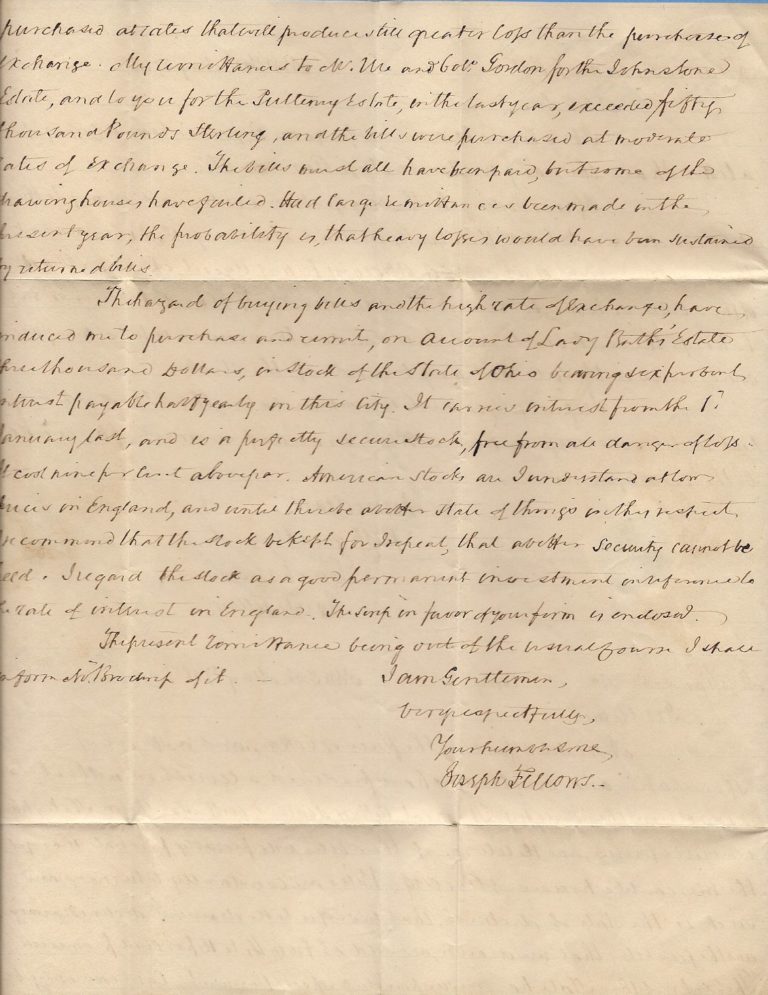 purchased at rates that will produce still greater loss than the purchase of
exchange. My remittances to Mr. Ure and Colo. Gordon for the Johnstone
Estate, and to you for the Pulteney Estate, in the last year, exceeded fifty
thousand Pounds Sterling, and the bills were purchased at moderate
rates of exchange. The bills must all have been paid, but some of the
drawing houses have failed. Had large remittances been made in the
present year, the probability is, that heavy losses would have been sustained
by returned bills
The hazard of buying bills and the high rate of exchange, have
induced me to purchase and remit, on account of Lady Bath's Estate
three thousand Dollars, in Stock of the State of Ohio bearing six pr cent
interest payable half yearly in this City. It carries interest from the 1.
January last, and is a perfectly secure stock, free from all danger of loss.
It cost nine per Cent above par. American Stocks are I understand at low
prices in England, and until there be a better state of things in this respect
I recommend that the stock be kept for I repeat, that a better security cannot be
held. I regard the stock as a good permanent investment in reference to
the rate of interest in England. The Scrip in favor of your firm is enclosed.
The present remittance being out of the usual course I shall
inform Mr. of it. –
I am Gentlemen,
very respectfully,
Your humble serve,
Joseph Fellows.